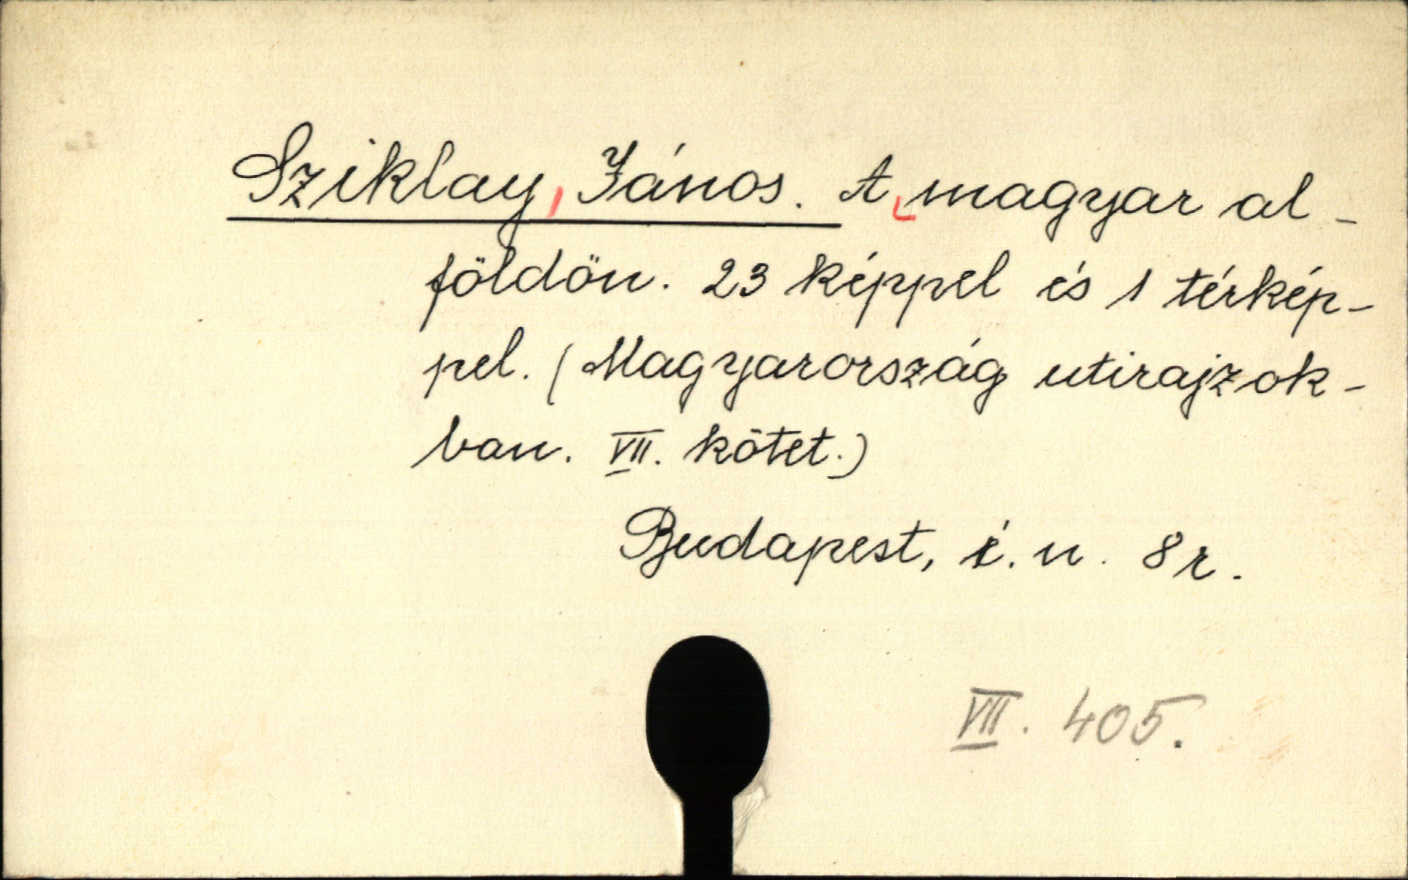 Sziklay, János. A magyar al-
földön. 23 képpel és 1 térkép-
pel. (Magyarország utirajzok-
ban. VII. kötet.)
Budapest, é. n. 8r.
VII. 405.